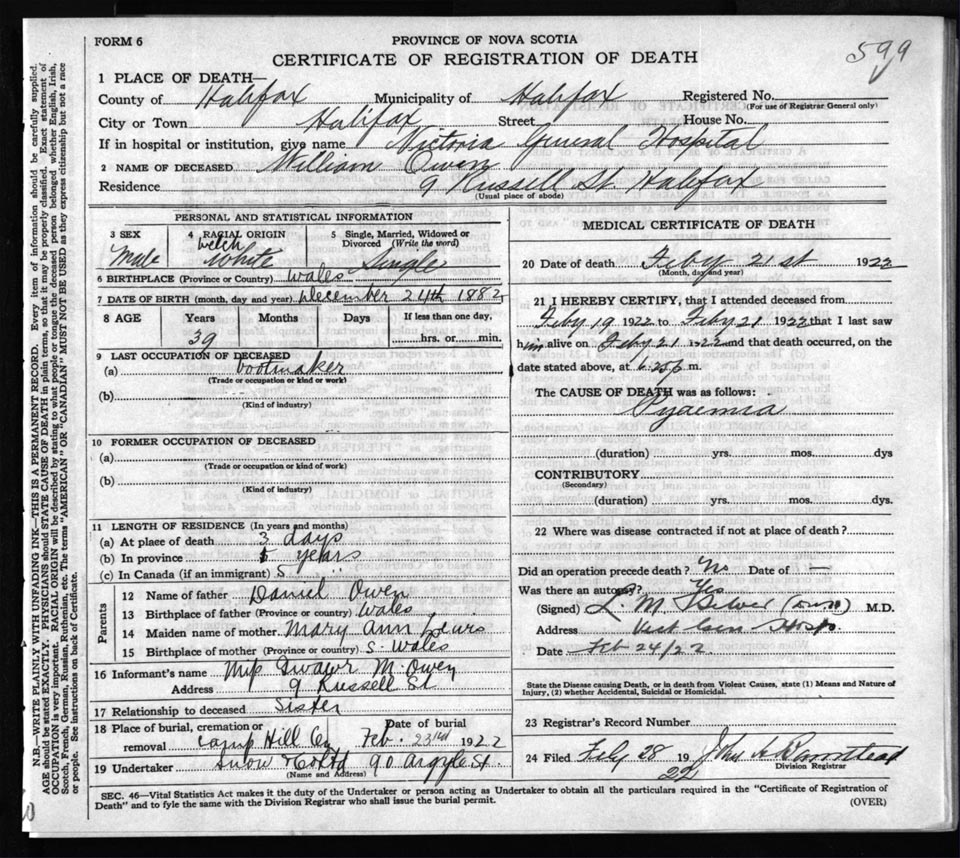 FORM 6
PROVINCE OF NOVA SCOTIA
CERTIFICATE OF REGISTRATION OF DEATH
599
1 PLACE OF DEATH—
County of Halifax Municipality of Halifax Registered No.
(For use of Registrar General only)
City or Town Halifax Street House No.
If in hospital or institution, give name Victoria General Hospital
2 NAME OF DECEASED William Owen
Residence 9 Russell St. Halifax
(Usual place of abode)
PERSONAL AND STATISTICAL INFORMATION
3 SEX 4 RACIAL ORIGIN 5 Single, Married, Widowed or Divorced (Write the word)
Male Welch White Single
6 BIRTHPLACE (Province or Country) Wales
7 DATE OF BIRTH (month, day and year) December 24th 1882
8 AGE Years Months Days If less than one day,
39 hrs. or min.
9 LAST OCCUPATION OF DECEASED
(a) bootmaker
(Trade or occupation or kind or work)
(b)
(Kind of industry)
10 FORMER OCCUPATION OF DECEASED
(a)
(Trade or occupation or kind of work)
(b)
(Kind of industry)
11 LENGTH OF RESIDENCE (In years and months)
(a) At place of death 3 days
(b) In province 5 years
(c) In Canada (if an immigrant) 5 "
Parents
12 Name of father Daniel Owen
13 Birthplace of father (Province or country) Wales
14 Maiden name of mother Mary Ann Lewis
15 Birthplace of mother (Province or country) S. Wales
16 Informant's name Miss M. Owen
Address 9 Russell St
17 Relationship to deceased Sister
18 Place of burial, cremation or removal Camp Hill Cem Date of burial Feb. 23rd 1922
19 Undertaker Snow & Co Ltd 90 Argyle St.
(Name and Address)
MEDICAL CERTIFICATE OF DEATH
20 Date of death Feby 21st 1922
(Month, day and year)
21 I HEREBY CERTIFY, that I attended deceased from
Feby 19 1922 to Feby 21 1922 that I last saw
him alive on Feby 21 1922 and that death occurred, on the
date stated above, at 6.25 p. m.
The CAUSE OF DEATH was as follows:
Pyaemia
(duration) yrs. mos. dys
CONTRIBUTORY
(Secondary)
(duration) yrs. mos. dys.
22 Where was disease contracted if not at place of death?
Did an operation precede death? No Date of —
Was there an autopsy? Yes
(Signed) L. M. Silver M.D.
Address Vict Gen Hosp.
Date Feb 24/22
State the Disease causing Death, or in death from Violent Causes, state (1) Means and Nature of
Injury, (2) whether Accidental, Suicidal or Homicidal.
23 Registrar's Record Number
24 Filed Feby 28 1922 John A
Division Registrar
SEC. 46—Vital Statistics Act makes it the duty of the Undertaker or person acting as Undertaker to obtain all the particulars required in the "Certificate of Registration of
Death" and to fyle the same with the Division Registrar who shall issue the burial permit.
(OVER)
N.B.—WRITE PLAINLY WITH UNFADING INK—THIS IS A PERMANENT RECORD. Every item of information should be carefully supplied.
AGE should be stated EXACTLY. PHYSICIANS should STATE CAUSE OF DEATH in plain terms, so that it may be properly classified. Exact statement of
OCCUPATION is very important. RACIAL ORIGIN will be described by stating to what people or tongue the deceased person belonged whether English, Irish,
Scotch, French, German, Russian, Ruthenian, etc. The terms "AMERICAN" OR "CANADIAN" MUST NOT BE USED as they express citizenship but not a race
or people. See instructions on back of Certificate.